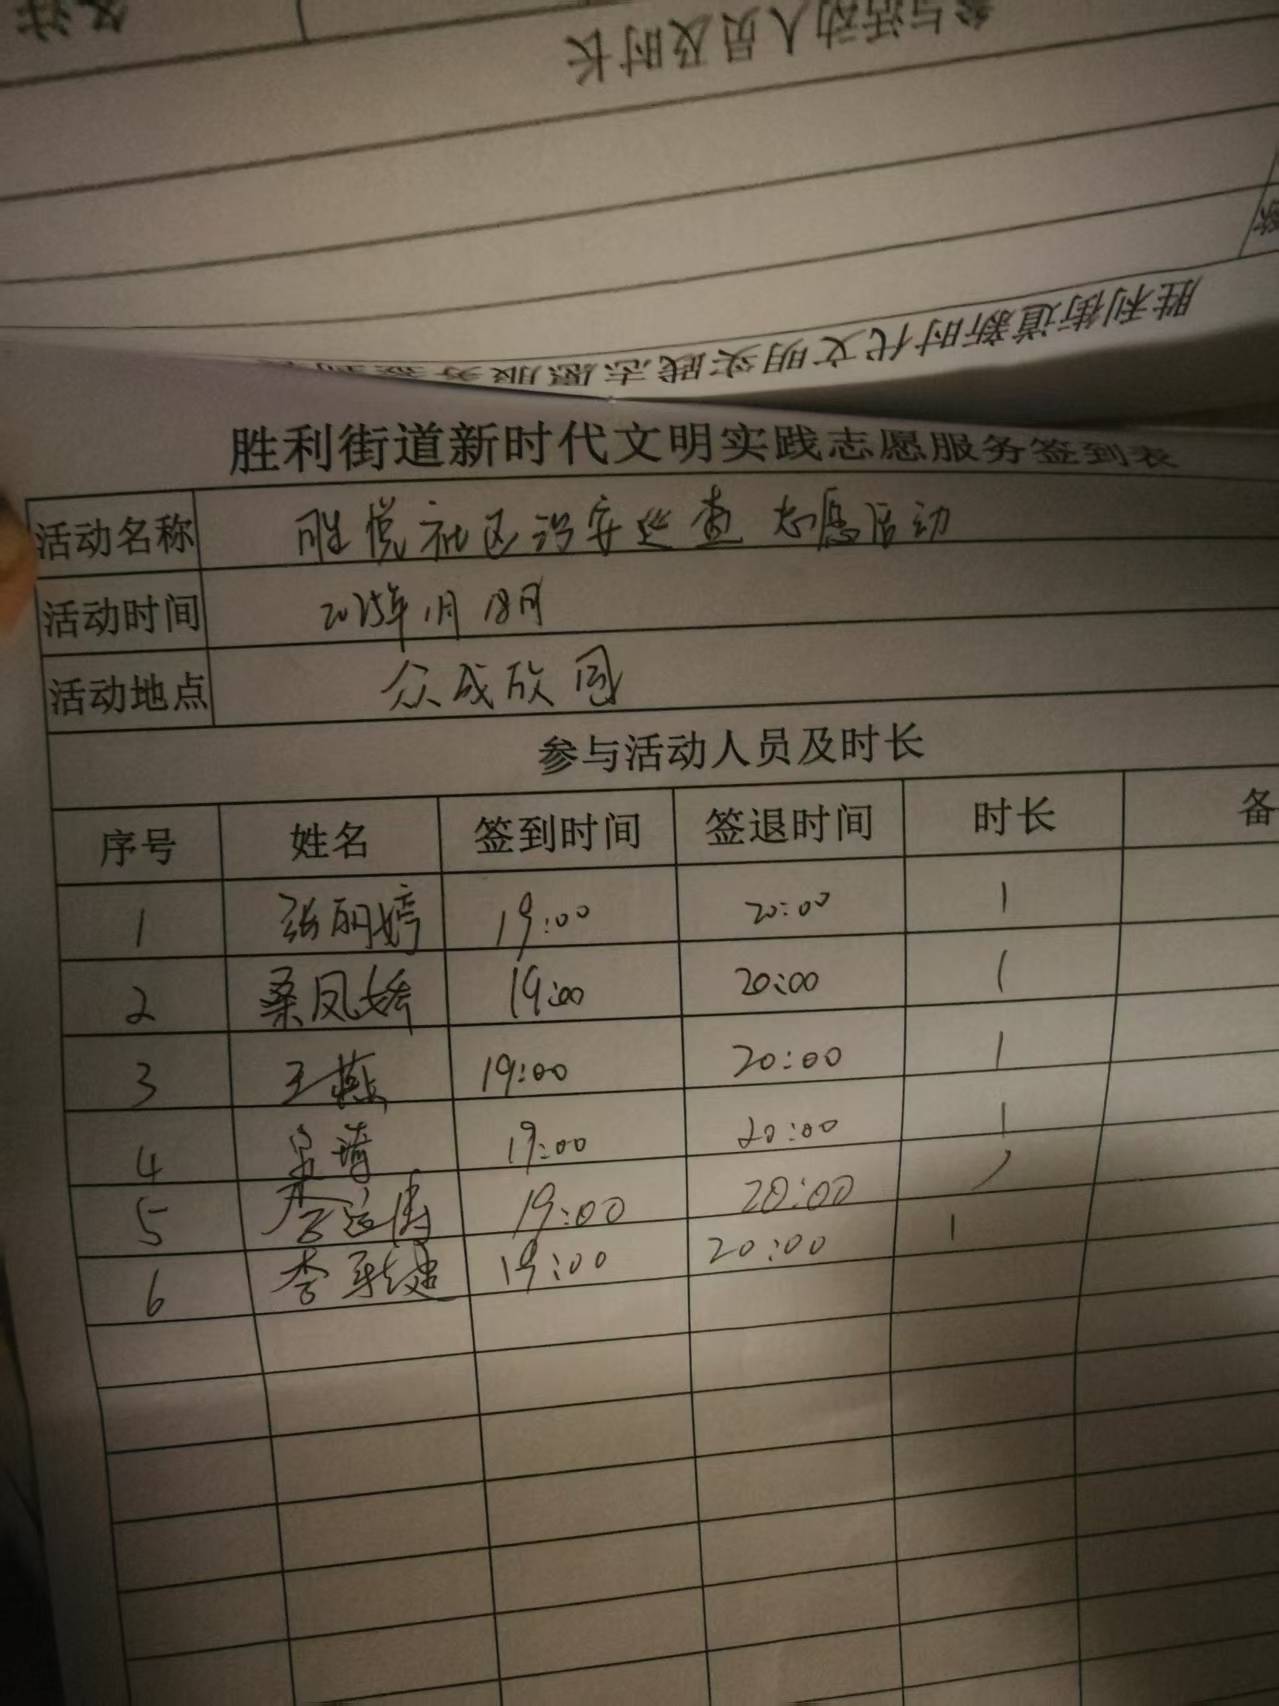 备注
参与活动人员及时长
胜利街道新时代文明实践志愿服务签到
胜利街道新时代文明实践志愿服务签到表
活动名称 胜悦社区治安巡查志愿活动
活动时间 2025年1月18日
活动地点 众成欣园
参与活动人员及时长
序号 姓名 签到时间 签退时间 时长 备
1 张丽婷 19:00 20:00 1
2 桑凤娇 19:00 20:00 1
3 王燕 19:00 20:00 1
4 19:00 20:00 1
5 19:00 20:00 1
6 李 19:00 20:00 1